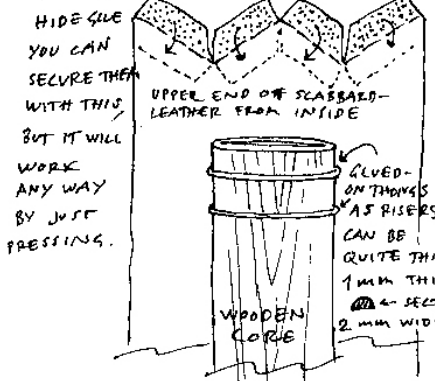 HIDE GLUE
YOU CAN
SECURE THEM
WITH THIS,
BUT IT WILL
WORK
ANY WAY
BY JUST
PRESSING.
UPPER END OF SCABBARD-
LEATHER FROM INSIDE
GLUED-
ON THONGS
AS RISERS
CAN BE
QUITE
1 mm
2 mm
WOODEN
CORE